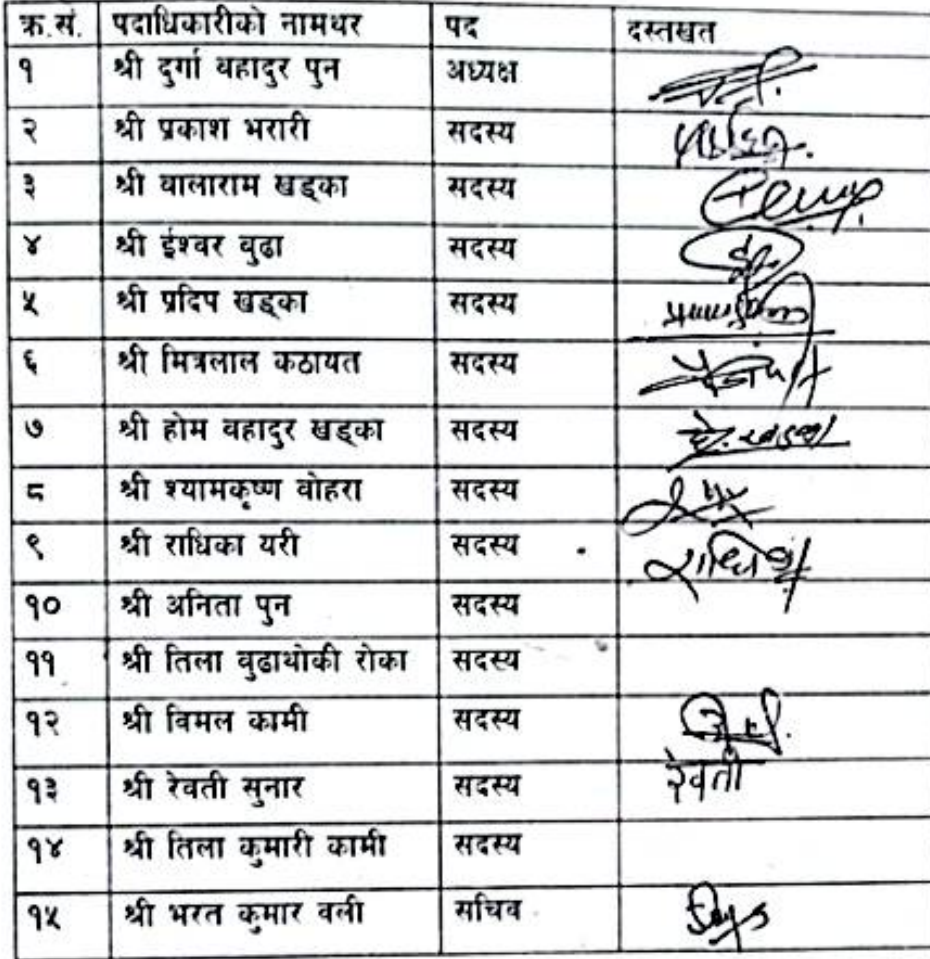 क्र.सं. पदाधिकारीको नामथर पद दस्तखत
१ श्री दुर्गा वहादुर पुन अध्यक्ष
२ श्री प्रकाश भरारी सदस्य
३ श्री वालाराम खड्का सदस्य
४ श्री ईश्वर वुढा सदस्य
५ श्री प्रदिप खड्का सदस्य
६ श्री मित्रलाल कठायत सदस्य
७ श्री होम वहादुर खड्का सदस्य
८ श्री श्यामकृष्ण वोहरा सदस्य
९ श्री राधिका यरी सदस्य
१० श्री अनिता पुन सदस्य
११ श्री तिला वुढाथोकी रोका सदस्य
१२ श्री विमल कामी सदस्य
१३ श्री रेवती सुनार सदस्य रेवती
१४ श्री तिला कुमारी कामी सदस्य
१५ श्री भरत कुमार वली सचिव